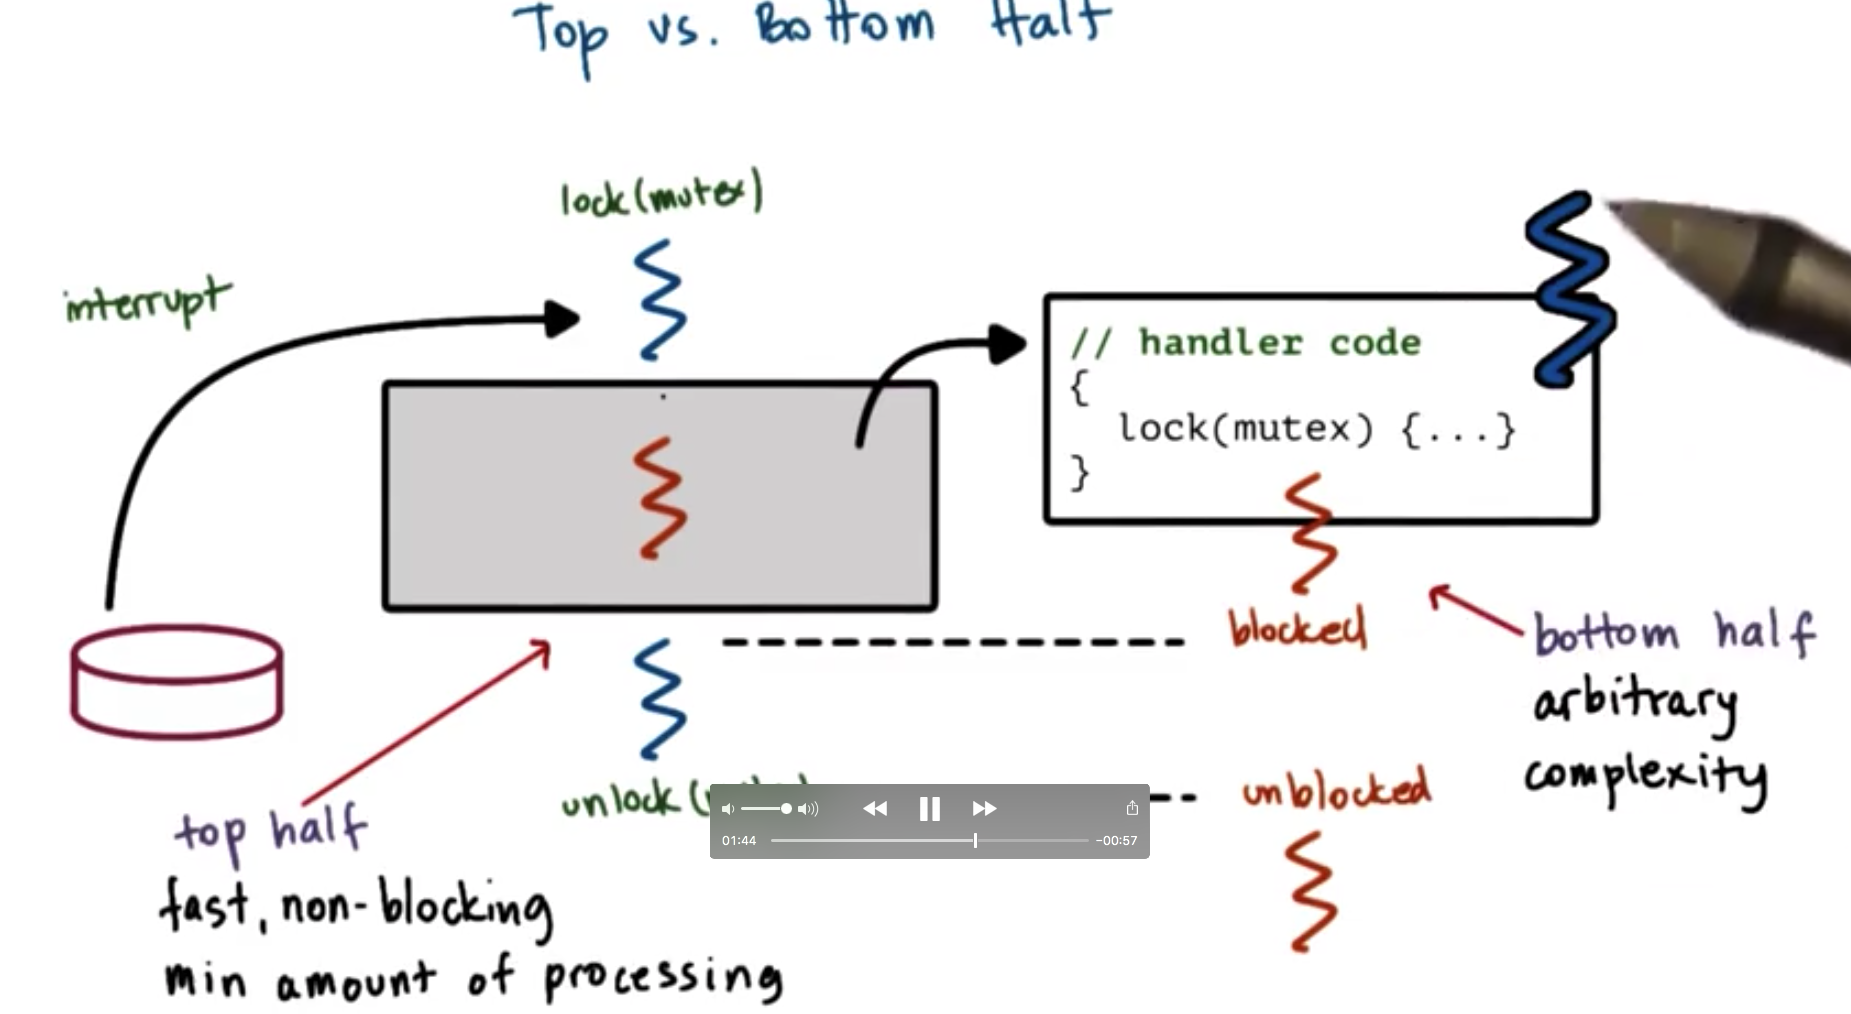 Top vs. Bottom Half
lock(mutex)
interrupt
// handler code
{
lock(mutex) {...}
}
blocked
bottom half
arbitrary
complexity
unlock(
unblocked
01:44
-00:57
top half
fast, non-blocking
min amount of processing